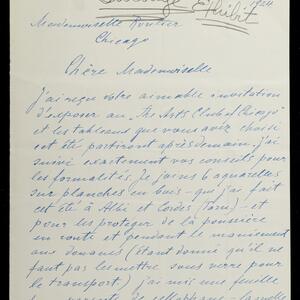 1924
Exhibit
Mademoiselle Roullier
Chicago
Chère Mademoiselle
J'ai reçu votre aimable invitation
d'exposer au "The Arts Club of Chicago"
et les tableaux que vous avez choisi
cet été partiront après demain, j'ai
suivi exactement vos conseils pour
les formalités. Je joins 6 aquarelles
sur planches en bois - que j'ai fait
cet été à Albi et Cordes (Tarn) - et
pour les protéger de la poussière
en route et pendant le maniement
aux douanes (étant donné qu'il ne
faut pas les mettre sous verre pour
le transport) j'ai mis une feuille